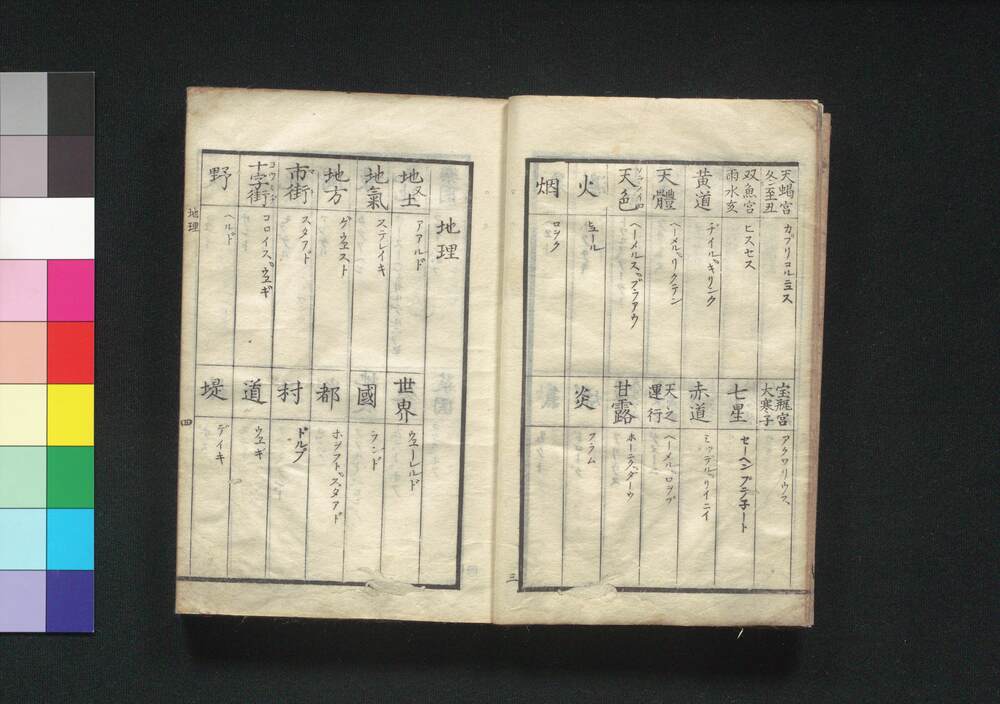 天蝎宮 冬至丑
カプリコルニュス
双魚宮 雨水亥
ヒスセス
黄道
デイルキリンク
天體
ヘーメルリクテン
天色 ソライロ
ヘーメルスブラアウ
火
ヒュール
烟
ロック
宝瓶宮 大寒子
アクワーリウス
七星
セーヘンプラネート
赤道
ミッデルリイニイ
天之運行
ヘーメルロップ
甘露
ホーニクダーウ
炎
フラム
三
地理
地 土
アアルド
地氣
ステレイキ
地方
ゲウェスト
市街
スタアド
十字街
コロイスウェギ
野
ヘルド
世界
ウェーレルド
國
ランド
都
ホップトスタアド
村
ドルプ
道
ウェギ
堤
デイキ
地理
四